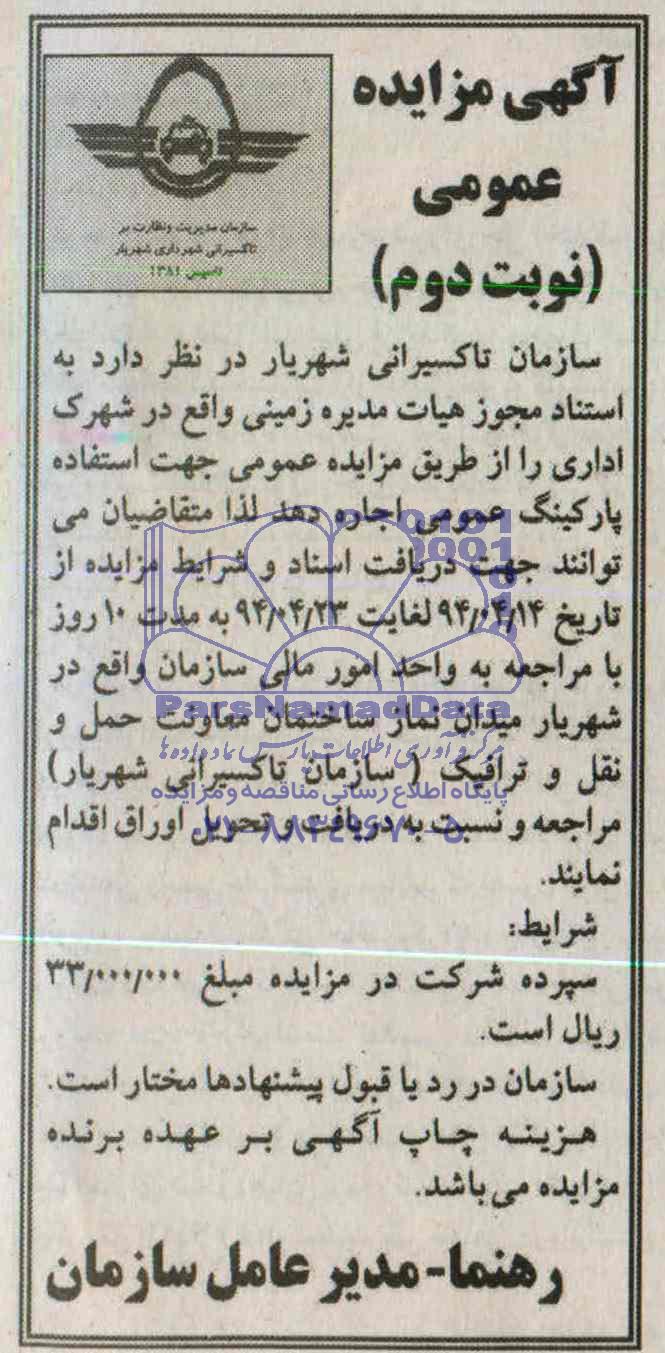 آگهی مزایده
عمومی
(نوبت دوم)
سازمان مدیریت ونظارت بر
تاکسیرانی شهرداری شهریار
تاسیس ۱۳۸۱
سازمان تاکسیرانی شهریار در نظر دارد به
استناد مجوز هیات مدیره زمینی واقع در شهرک
اداری را از طریق مزایده عمومی جهت استفاده
پارکینگ عمومی اجاره دهد لذا متقاضیان می
توانند جهت دریافت اسناد و شرایط مزایده از
تاریخ ۹۴/۰۴/۱۴ لغایت ۹۴/۰۴/۲۳ به مدت ۱۰ روز
با مراجعه به واحد امور مالی سازمان واقع در
شهریار میدان نماز ساختمان معاونت حمل و
نقل و ترافیک ( سازمان تاکسیرانی شهریار)
مراجعه و نسبت به دریافت و تحویل اوراق اقدام
نمایند.
شرایط:
سپرده شرکت در مزایده مبلغ ۳۳/۰۰۰/۰۰۰
ریال است.
سازمان در رد یا قبول پیشنهادها مختار است.
هزینه چاپ آگهی بر عهده برنده
مزایده می باشد.
رهنما- مدیر عامل سازمان
ParsNamadData
مرکز فرآوری اطلاعات پارس نماد داده ها
پایگاه اطلاع رسانی مناقصه و مزایده
۰۲۱-۸۸۳۴۹۶۷۰-۵